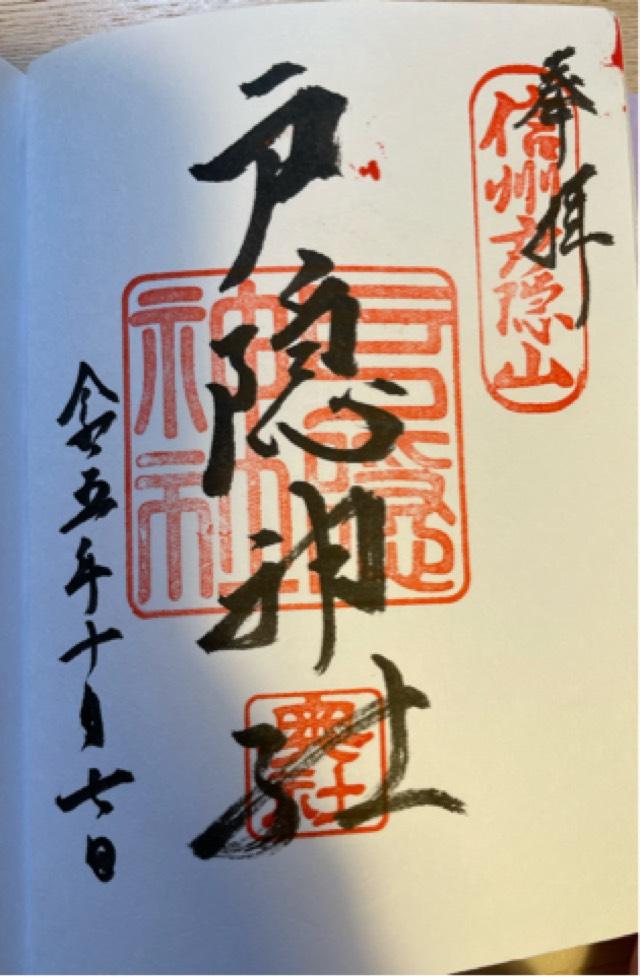 奉拝
信州戸隠山
戸隠神社
戸隠神社
奥社
令五年十月七日